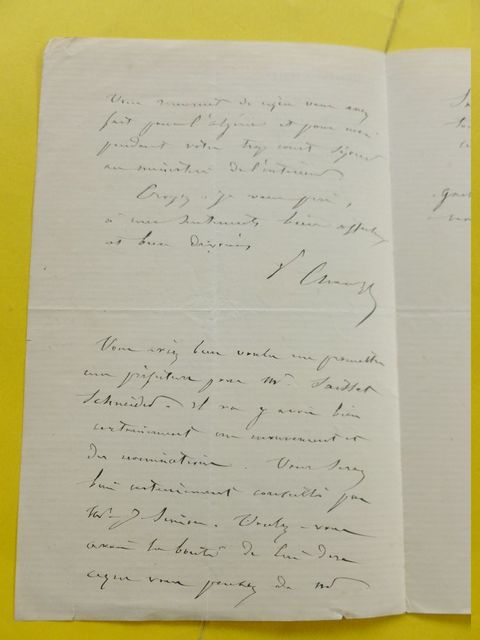 Vous remercier de ce que vous avez
fait pour l'algérie et pour moi
pendant votre trop court séjour
au ministère de l'intérieur
Croyez, je vous prie,
à mes sentiments bien affectueux
et bien dévoués
Chanzy
Vous aviez bien voulu me promettre
une préfecture pour Mr. Sausset
Schneider. il va y avoir bien
certainement un mouvement et
des nominations. Vous serez
bien certainement consulté par
Mr J Simon. Veuillez-vous
avoir la bonté de lui dire
ce que vous pensez de Mr